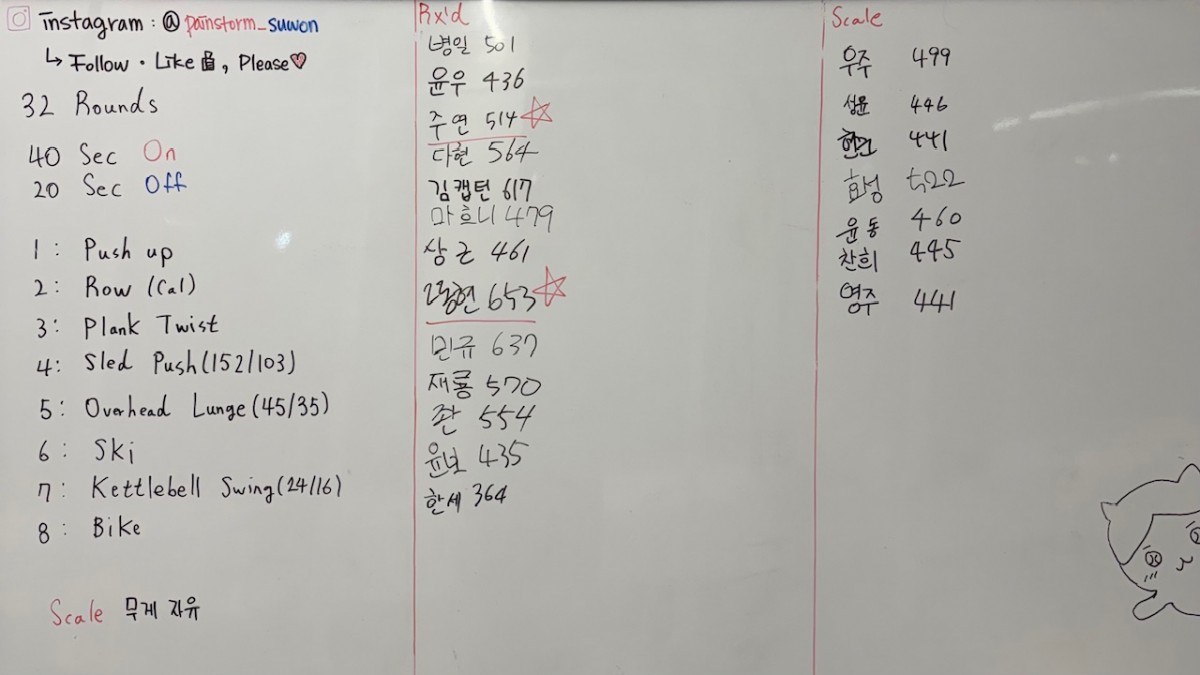 instagram : @painstorm_suwon
↳ Follow · Like 👍, Please♡
32 Rounds
40 Sec On
20 Sec Off
1 : Push up
2 : Row (Cal)
3 : Plank Twist
4 : Sled Push (152/103)
5 : Overhead Lunge (45/35)
6 : Ski
7 : Kettlebell Swing (24/16)
8 : Bike
Scale 무게 자유
Rx'd
병일 501
윤우 436
주연 514 ☆
다현 564
김캡틴 617
마흐니 479
상근 461
653 ☆
민규 637
재룡 570
좐 554
윤보 435
한세 364
Scale
우주 499
성윤 446
441
효성 522
윤동 460
찬희 445
영주 441